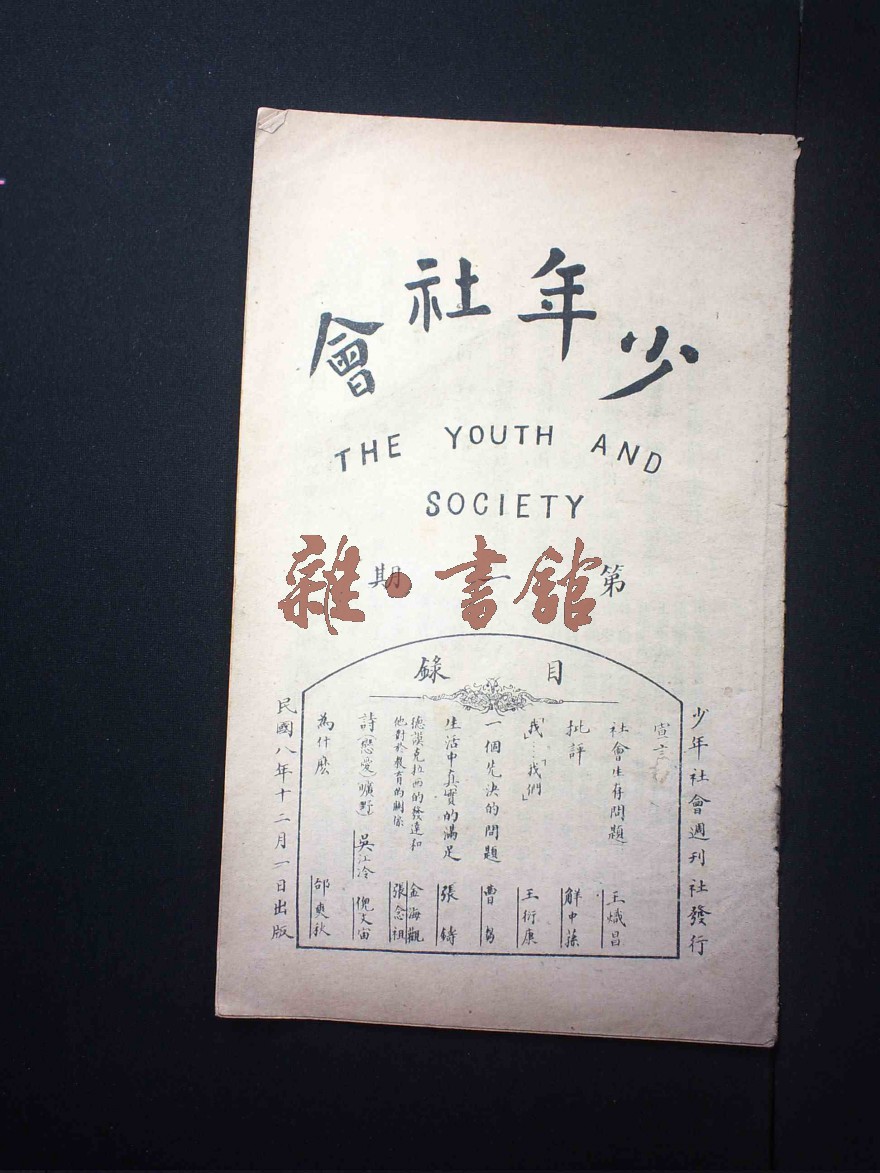 少年社會
THE YOUTH AND
SOCIETY
第一期
雜·書館
目錄
少年社會週刊社發行
宣言
社會生存問題 王熾昌
批評 解中蓀
「我」…「我們」 王衍康
一個先決的問題 曹芻
生活中真實的滿足 張鑄
德謨克拉西的發達和
他對於教育的關係 金海觀 張念祖
詩(戀愛)曠野 吳江冷 倪文宙
為什麽 邰爽秋
民國八年十二月一日出版